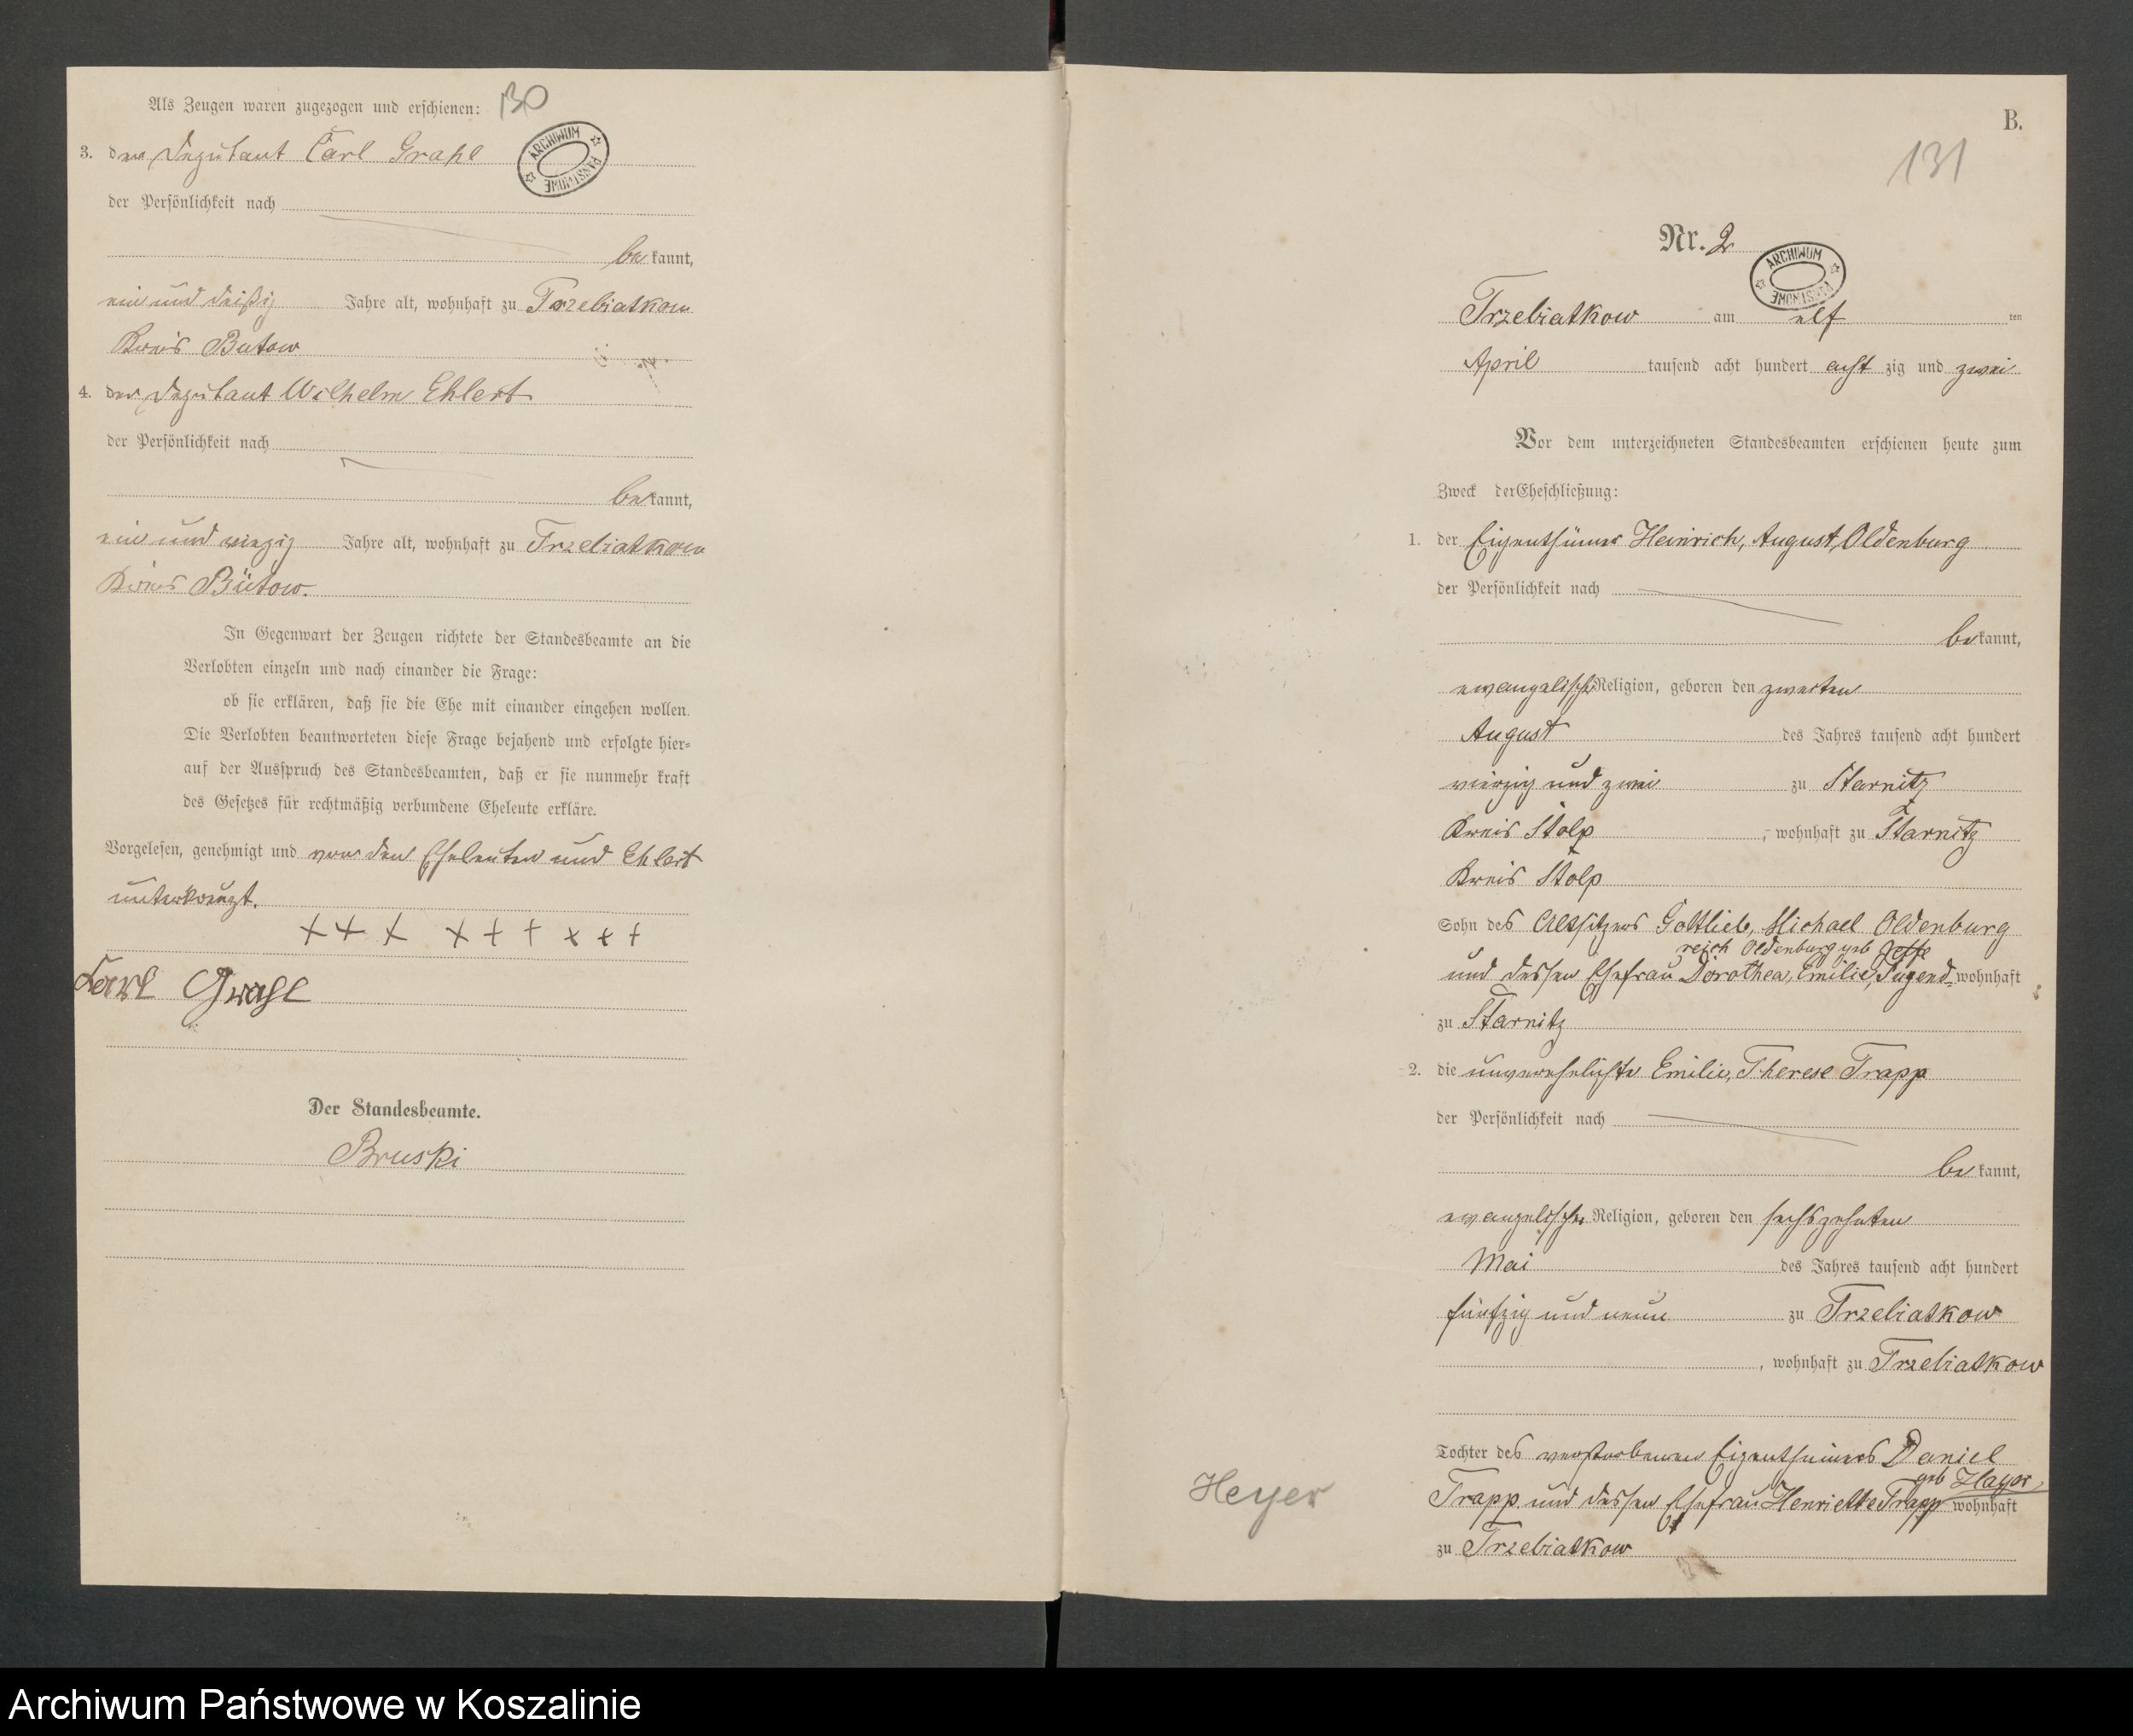 130
Als Zeugen waren zugezogen und erschienen:
3. der Deputant Carl Grahl
ARCHIWUM PAŃSTWOWE
der Persönlichkeit nach
be kannt,
ein und dreißig Jahre alt, wohnhaft zu Trzebiatkow
Kreis Butow
4. der Deputant Wilhelm Ehlert
der Persönlichkeit nach
be kannt,
ein und vierzig Jahre alt, wohnhaft zu Trzebiatkow
Kreis Bütow.
In Gegenwart der Zeugen richtete der Standesbeamte an die
Verlobten einzeln und nach einander die Frage:
ob sie erklären, daß sie die Ehe mit einander eingehen wollen.
Die Verlobten beantworteten diese Frage bejahend und erfolgte hier=
auf der Ausspruch des Standesbeamten, daß er sie nunmehr kraft
des Gesetzes für rechtmäßig verbundene Eheleute erkläre.
Vorgelesen, genehmigt und von den Eheleuten und Ehlert
unterkreuzt.
+++ +++ +++
Karl Grahl
Der Standesbeamte.
Bruski
B.
131
Nr. 2
ARCHIWUM PAŃSTWOWE
Trzebiatkow am elf ten
April tausend acht hundert acht zig und zwei
Vor dem unterzeichneten Standesbeamten erschienen heute zum
Zweck der Eheschließung:
1. der Eigenthümer Heinrich, August, Oldenburg
der Persönlichkeit nach
be kannt,
evangelischer Religion, geboren den zweiten
August des Jahres tausend acht hundert
vierzig und zwei zu Starnitz
Kreis Stolp, wohnhaft zu Starnitz
Kreis Stolp
Sohn des Altsitzers Gottlieb, Michael Oldenburg
reich Oldenburg geb
und dessen Ehefrau Dorothea, Emilie, Tugend= wohnhaft
zu Starnitz
2. die unverehelichte Emilie, Therese Trapp
der Persönlichkeit nach
be kannt,
evangelischer Religion, geboren den sechszehnten
Mai des Jahres tausend acht hundert
fünfzig und neun zu Trzebiatkow
, wohnhaft zu Trzebiatkow
Tochter des verstorbenen Eigenthümers Daniel
geb Hayer,
Trapp und dessen Ehefrau Henriette Trapp wohnhaft
Heyer
zu Trzebiatkow
Archiwum Państwowe w Koszalinie